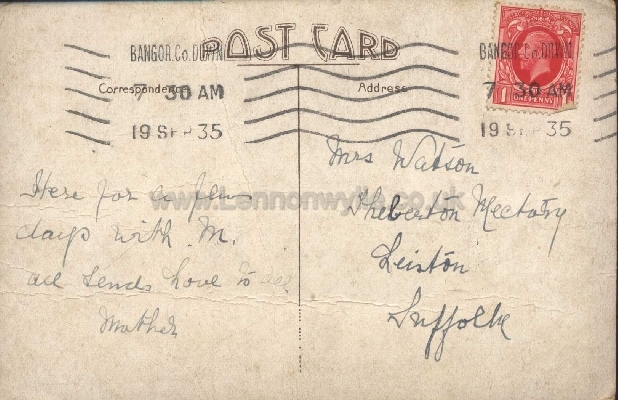 POST CARD
BANGOR.Co.DOWN
7 30 AM
19 SEP 35
BANGOR.Co.DOWN
7 30 AM
19 SEP 35
1 ONE PENNY
Correspondence
Address
www.Lennonwylie.co.uk
Here for a few
days with M.
all sends love to all
Mother
Mrs Watson
Theberton Rectory
Leiston
Suffolk